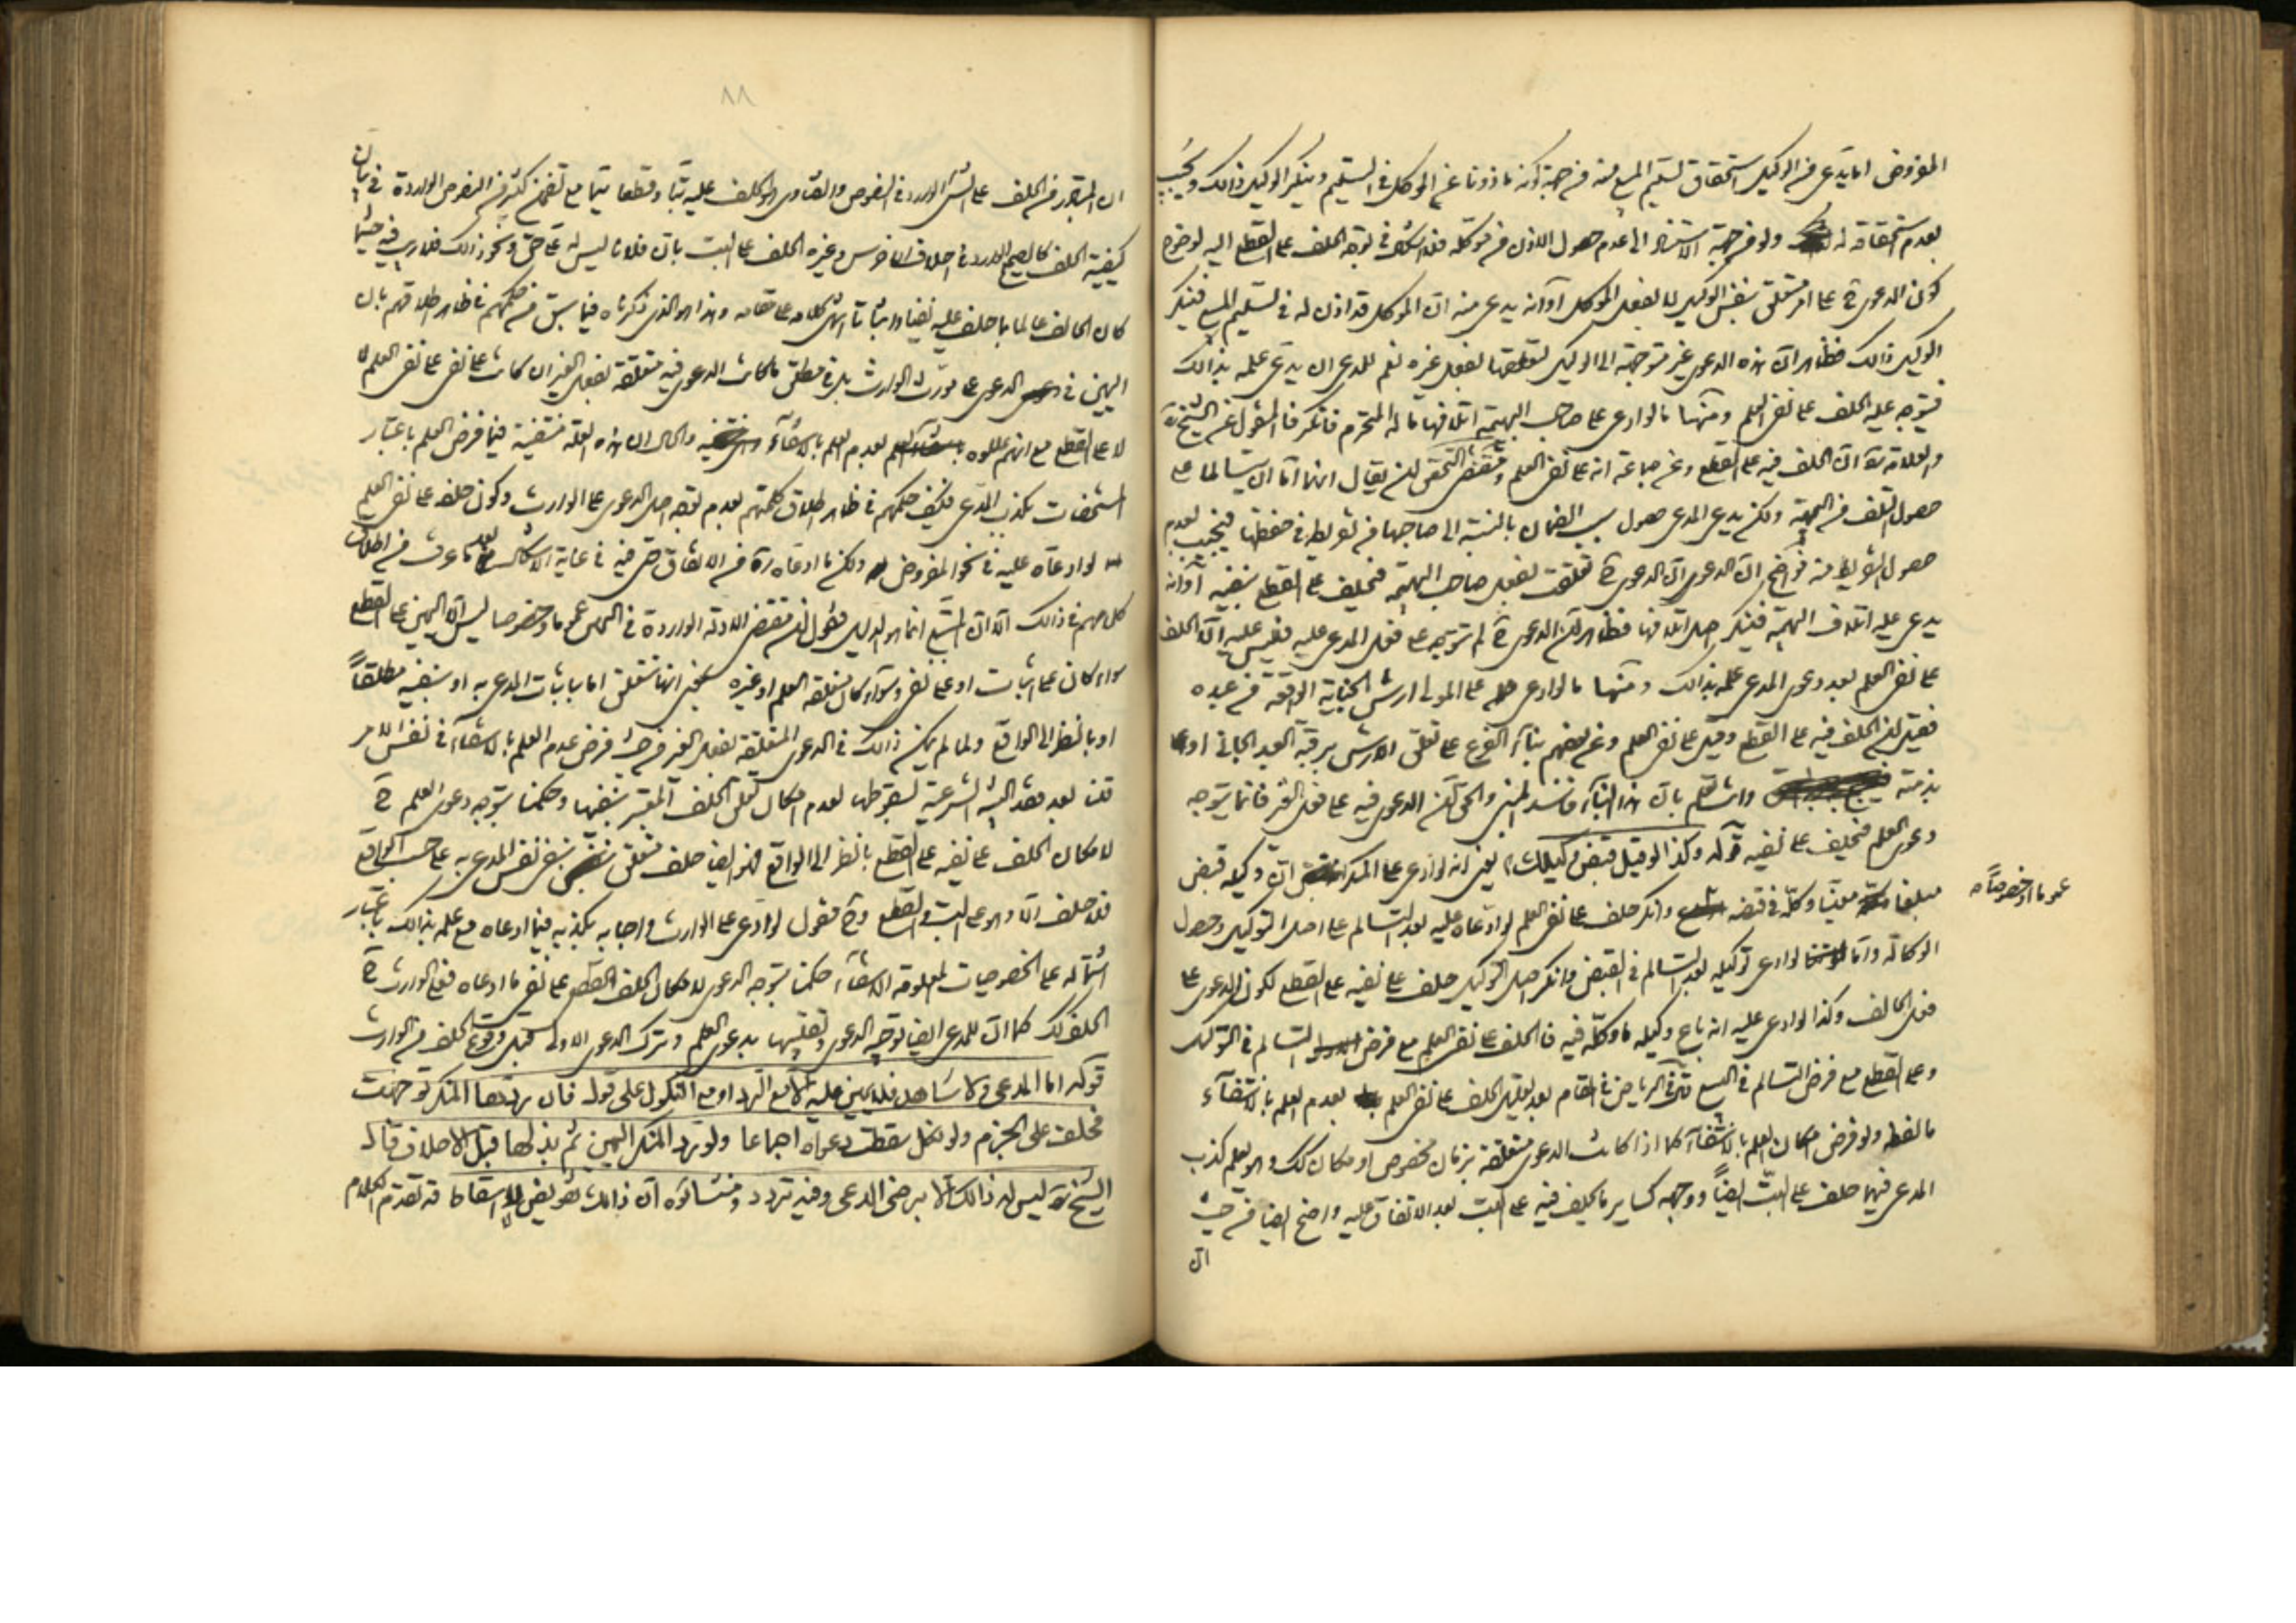 المفروض اما يدعى من الوكيل استحقاق تسليم المبيع منه من جهة كونه ماذونا عن الموكل في التسليم وينكر الوكيل ذالك ويجيب
بعدم استحقاقه له ولو من جهة الاستناد الى عدم حصول الاذن من موكله فلا اشكال في توجه الحلف على القطع اليه لوضوح
كون الدعوى ح على امر متعلق بنفس الوكيل لا بفعل الموكل او انه يدعى منه ان الموكل قد اذن له في تسليم المبيع فينكر
الوكيل ذالك فظاهر ان هذه الدعوى غير متوجهة الى الوكيل لتعلقها بفعل غيره نعم للمدعى ان يدعى علمه بذالك
فيتوجه عليه الحلف على نفى العلم ومنها ما لو ادعى على صاحب البهيمة اتلافها ماله المحترم فانكر فالمنقول عن الشيخ ره
والعلامة ره ان الحلف فيه على القطع وعن جماعة انه على نفى العلم ومقتضى التحقيق ان يقال انهما اما ان يتسالما على
حصول التلف من البهيمة ولكن يدعى المدعى حصول سبب الضمان بالنسبة الى صاحبها من تفريطه في حفظها فيجيب بعدم
حصول التفريط منه فواضح ان الدعوى ح تعلقت بفعل صاحب البهيمة فيحلف على القطع بنفيه او انه
يدعى عليه اتلاف البهيمة فينكر اصل اتلافها فظاهر ان الدعوى ح لم تتوجه على فعل المدعى عليه فليس عليه الا الحلف
على نفى العلم بعد دعوى المدعى علمه بذالك ومنها ما لو ادعى على المولى ارش الجناية الواقعة من عبده
فقيل ان الحلف فيه على القطع وقيل على نفى العلم وعن بعضهم بناء الفرع على تعلق الارش برقبة العبد الجانى او
بذمته وانت تعلم بان هذا البناء فاسد المبنى والحق ان الدعوى فيه على فعل الغير فانما يتوجه
دعوى العلم فيحلف على نفيه قوله وكذا لو قيل قبض وكيلك يعنى انه لو ادعى على المنكر ان وكيله قبض
مبلغا معينا وكله في قبضه وانكر حلف على نفى العلم لو ادعاه عليه بعد التسالم على اصل التوكيل وحصول
عموما او خصوصا
الوكالة واما لو ادعى توكيله بعد التسالم في القبض وانكر اصل التوكيل حلف على نفيه على القطع لكون الدعوى على
فعل الحالف وكذا لو ادعى عليه انه باع وكيله ما وكله فيه فالحلف على نفى العلم مع فرض التسالم في التوكيل
وعلى القطع مع فرض التسالم في البيع في الرياض في المقام بعد تعليل الحلف على نفى العلم بعدم العلم بانتفاء
ما لفظه ولو فرض امكان العلم بالانتفاء كما اذا كانت الدعوى متعلقة بزمان مخصوص او مكان كك وهو يعلم كذب
المدعى فيهما حلف على البت ايضا ووجهه كساير ما يحلف فيه على البت بعد الاتفاق عليه واضح ايضا من حيث
ان
٨٨
ان المتبادر من الحلف على الشئ الوارد في النصوص والفتاوى الحلف عليه بتا وقطعا سيما مع تضمن كثير من النصوص الواردة في بيان
كيفية الحلف كالصحيح الوارد في احلاف الاخرس وغيره الحلف على البت بان فلانا ليس له على حق ونحو ذالك فلا ريب فيه حيثما
كان الحالف عالما بما حلف عليه نفيا واثباتا انتهى كلامه على مقامه وهذا هو الذى ذكرناه فيما سبق من حكمهم في ظاهر اطلاقهم بان
اليمين في الدعوى على مورث الوارث بل في مطلق ما كانت الدعوى فيه متعلقة بفعل الغير ان كانت على نفى على نفى العلم
لا على القطع مع انهم عللوه بعدم العلم بالانتفاء والحال ان هذه العلة منتفية فيما فرض العلم باعتبار
المشخصات بكذب المدعى فكيف حكمهم في ظاهر اطلاق كلمتهم بعدم توجه اصل الدعوى على الوارث وكون حلفه على نفى العلم
لو ادعاه عليه في نحو المفروض ولكن ما ادعاه ره من الاتفاق حتى فيه في غاية الاشكال بعد ما عرف من اطلاق
كلامهم في ذالك الا ان المتبع انما هو الدليل فنقول ان مقتضى الادلة الواردة في اليمين عموما وخصوصا ليس الا اليمين على القطع
سواء كان على اثبات او على نفى وسواء كان متعلقه العلم او غيره انها تتعلق اما باثبات المدعى به او بنفيه مطلقا
او بالنظر الى الواقع ولما لم يمكن ذالك في الدعوى المتعلقة بفعل الغير من حيث فرض عدم العلم بالانتفاء في نفس الامر
قلنا بعد فقد البينة الشرعية بسقوطها لعدم امكان الحلف المعتبر بنفيها وحكمنا بتوجه دعوى العلم ح
لامكان الحلف على نفيه على القطع بالنظر الى الواقع فهو ايضا حلف متعلق بنفى نفس المدعى به على حسب الواقع
فلا حلف الا وهو على البت والقطع وح فنقول لو ادعى على الوارث واجابه بكذبه فيما ادعاه مع علمه بذالك باعتبار
اشتماله على الخصوصيات المعلومة الانتفاء حكمنا بتوجه الدعوى لامكان الحلف القطع على نفى ما ادعاه فعلى الوارث ح
الحلف كك كما ان للمدعى ايضا توجيه الدعوى وتقليبها بدعوى العلم وترك الدعوى الاولى قبل وقوع الحلف من الوارث
قوله اما المدعى ولا شاهد فلا يمين عليه الا مع الرد او مع النكول على قول فان ردها المنكر توجهت
فيحلف على الجزم ولو نكل سقطت دعواه اجماعا ولو رد المنكر اليمين ثم بذلها قبل الاحلاف قال
الشيخ ره ليس له ذالك الا برضى المدعى وفيه تردد ومنشاؤه ان ذالك تفويض لا اسقاط قد تقدم الكلام